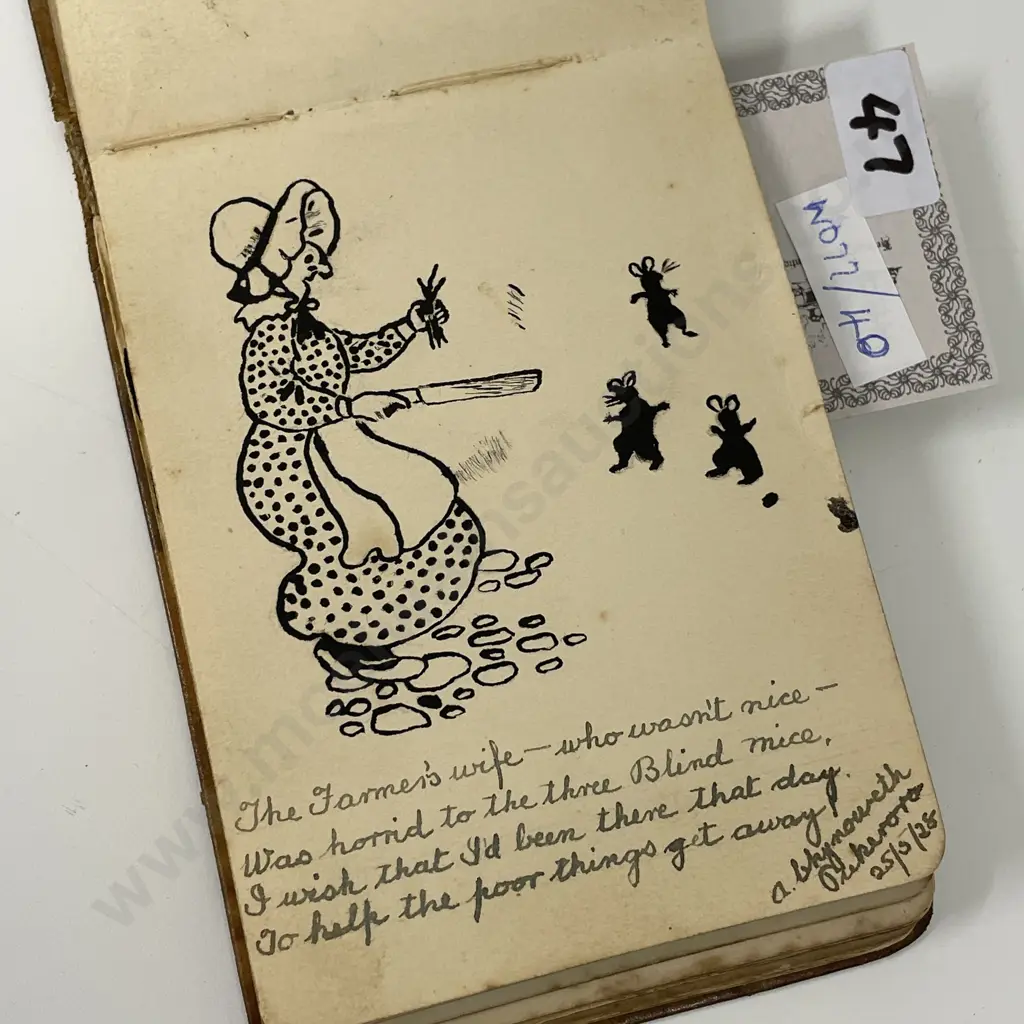 The Farmer's wife — who wasn't nice —
Was horrid to the three Blind mice,
I wish that I'd been there that day.
To help the poor things get away!
25/5/28
47